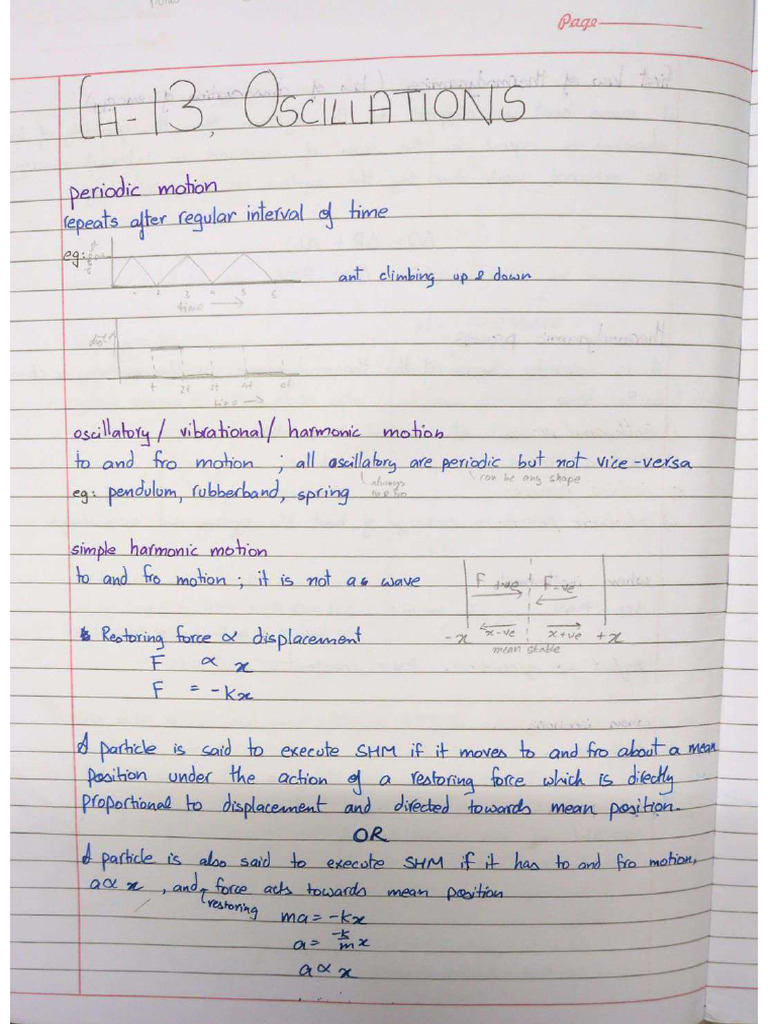 Page
CH-13, OSCILLATIONS
periodic motion
repeats after regular interval of time
eg:
ant climbing up & down
1 2 3 4 5 6
time
t 2t 3t 4t
time
oscillatory/ vibrational/ harmonic motion
to and fro motion ; all oscillatory are periodic but not vice-versa
always to & fro
can be any shape
eg: pendulum, rubberband, spring
simple harmonic motion
to and fro motion ; it is not a wave
F +ive F -ve
Restoring force ∝ displacement
-x x-ve x+ve +x
mean stable
F ∝ x
F = -kx
A particle is said to execute SHM if it moves to and fro about a mean
position under the action of a restoring force which is directly
proportional to displacement and directed towards mean position.
OR
A particle is also said to execute SHM if it has to and fro motion,
a∝ x , and force acts towards mean position
restoring
ma = -kx
a = -k/m x
a ∝ x